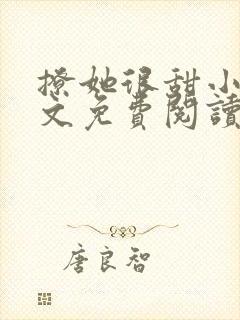 撩她很甜小
文免費閱讀
唐良智